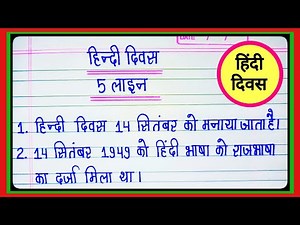 हिन्दी दिवस
5 लाइन
हिंदी
दिवस
1. हिन्दी दिवस 14 सितंबर को मनाया जाता है।
2. 14 सितंबर 1949 को हिंदी भाषा को राजभाषा
का दर्जा मिला था।